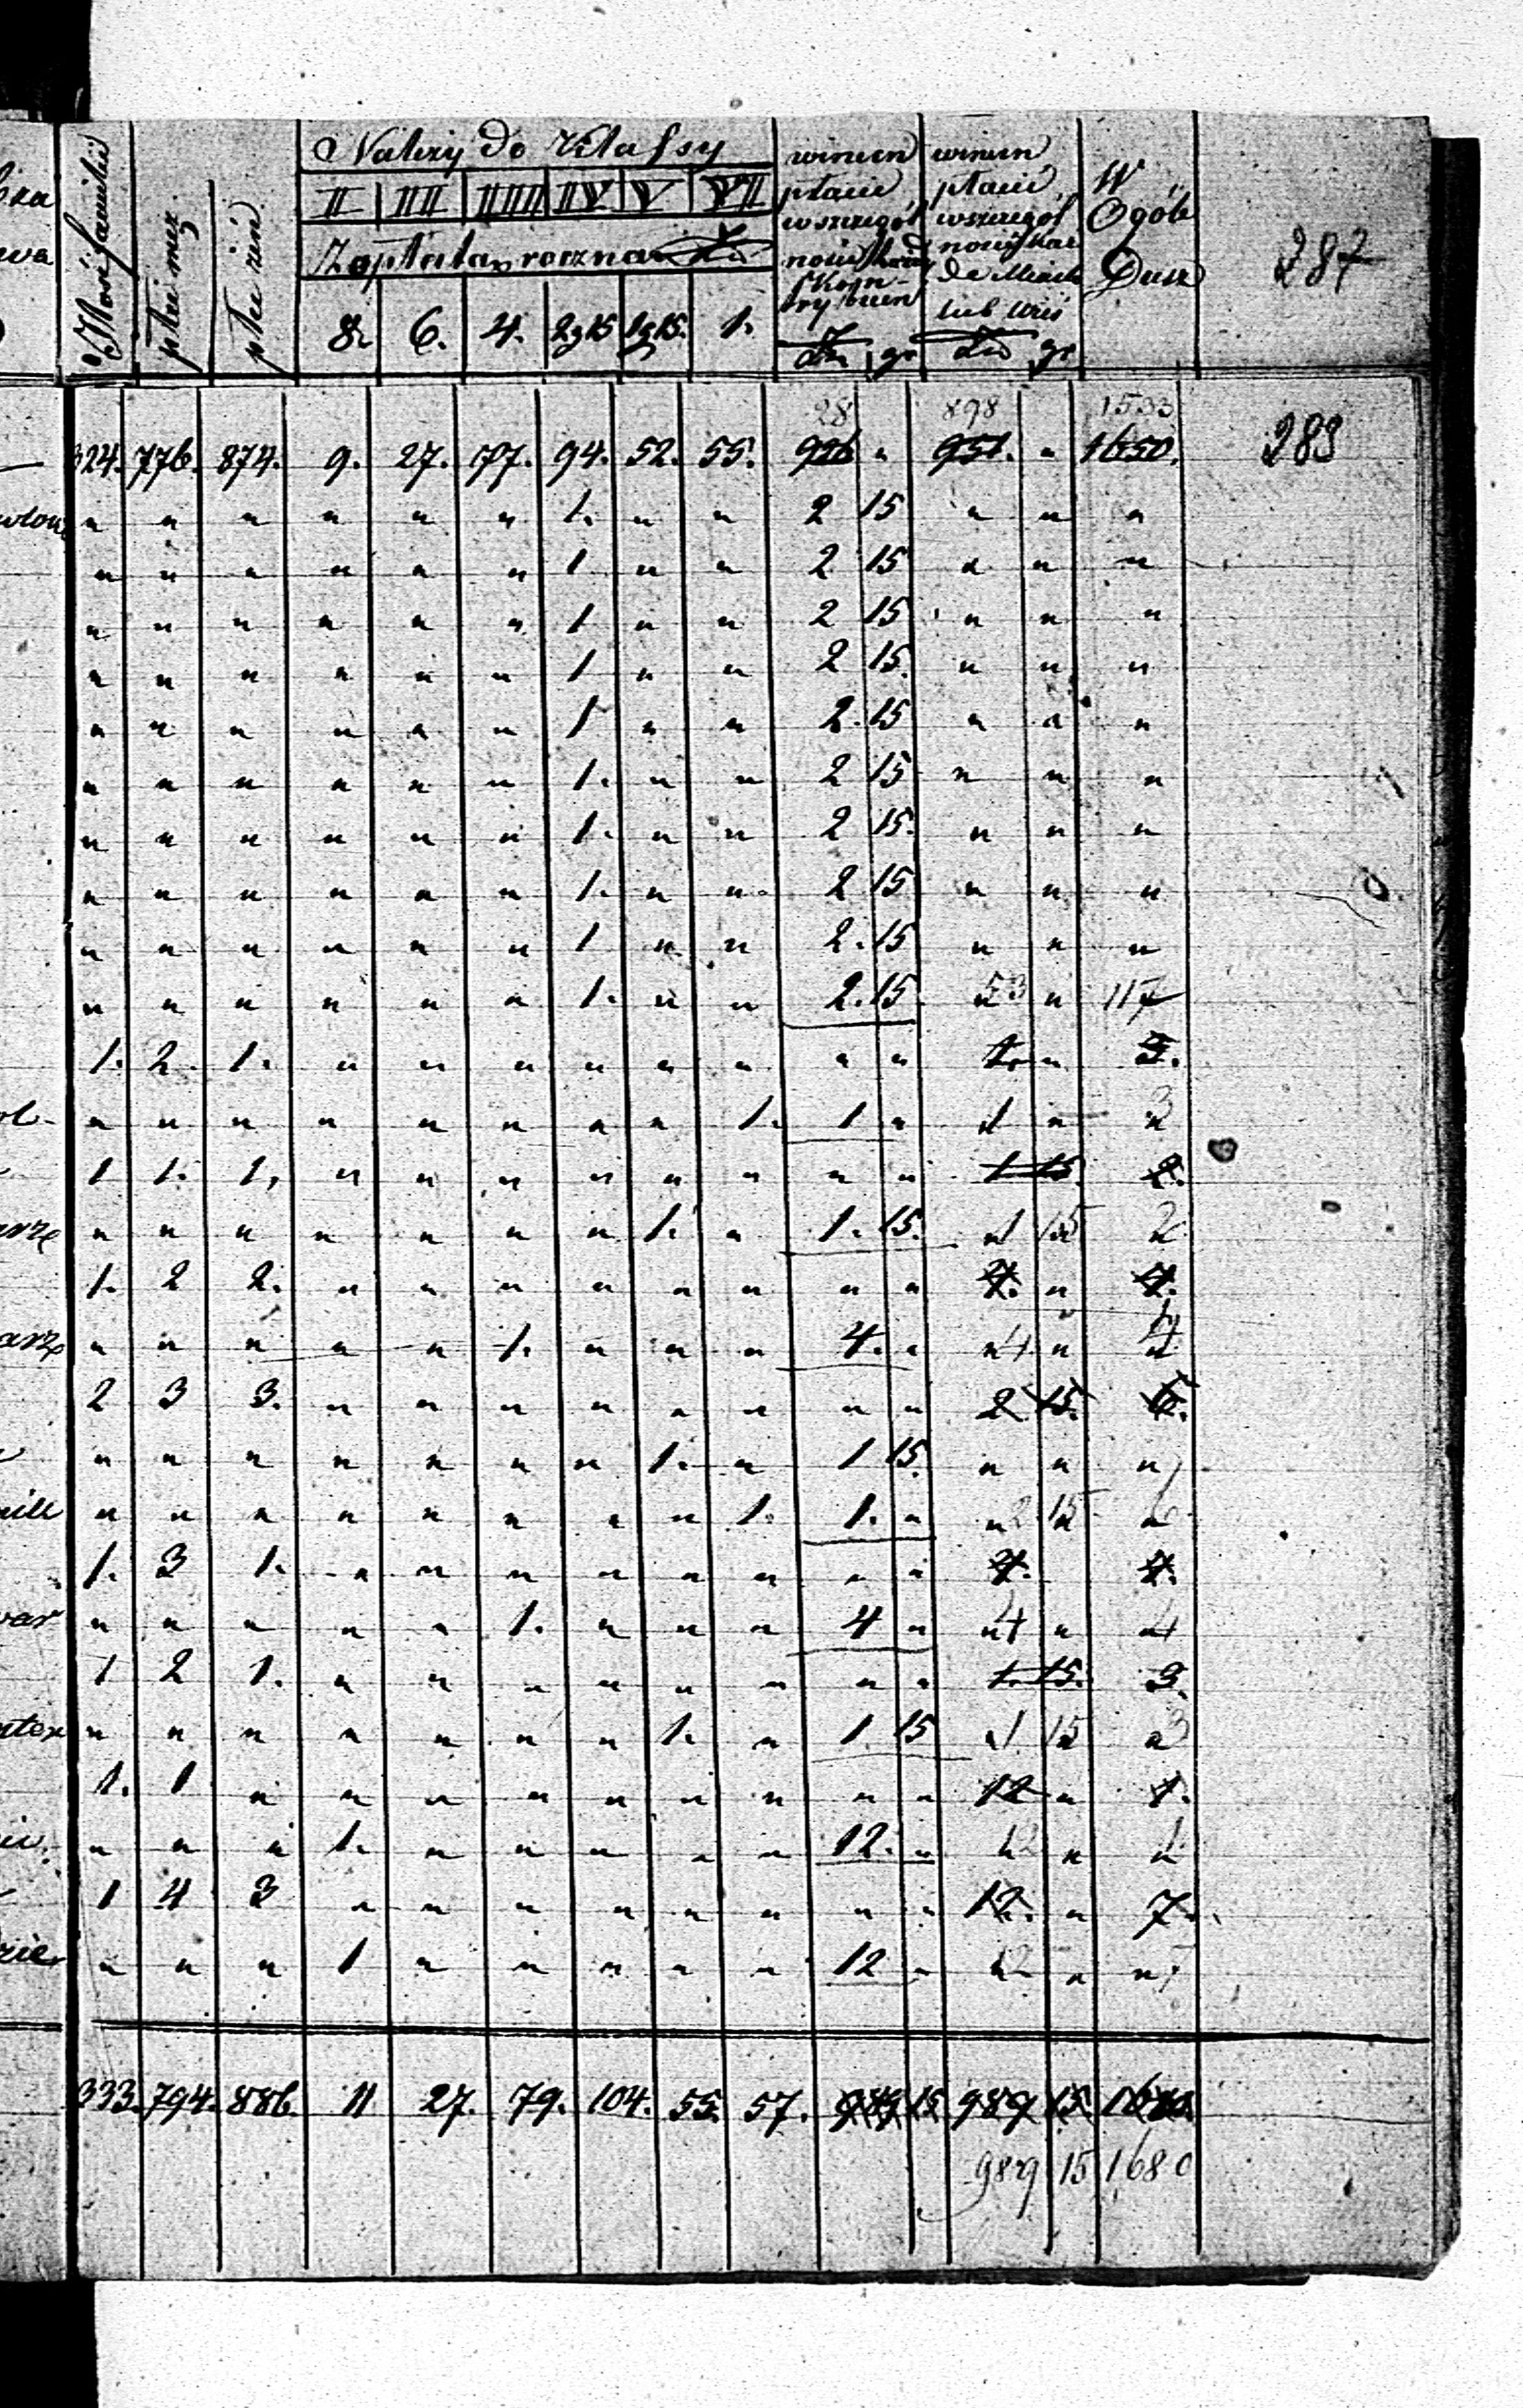 Ilość familii | płci męz. | płci żeń. | Należy do Klassy | winien płacić w szczegól | winien płacić w szczegól | W Ogóle Dusz | 287
II | III | IIII | IV | V | VI
Zapłata roczna
8. | 6. | 4. | 2 g 15 | 1 g 15. | 1. | gr | gr
28 | 898 | 1533
324. | 776. | 874. | 9. | 27. | 77. | 94. | 52. | 55. | 926 | " | 951. | " | 1650. | 289
" | " | " | " | " | " | 1. | " | " | 2 | 15 | " | " | "
" | " | " | " | " | " | 1 | " | " | 2 | 15 | " | " | "
" | " | " | " | " | " | 1 | " | " | 2 | 15 | " | " | "
" | " | " | " | " | " | 1 | " | " | 2 | 15. | " | " | "
" | " | " | " | " | " | 1 | " | " | 2. | 15 | " | " | "
" | " | " | " | " | " | 1. | " | " | 2 | 15 | " | " | "
" | " | " | " | " | " | 1. | " | " | 2 | 15. | " | " | "
" | " | " | " | " | " | 1. | " | " | 2 | 15 | " | " | "
" | " | " | " | " | " | 1 | " | " | 2. | 15 | " | " | "
" | " | " | " | " | " | 1. | " | " | 2. | 15 | 53 | " | 117
1. | 2. | 1. | " | " | " | " | " | " | " | " | 1. | " | 3.
" | " | " | " | " | " | " | " | 1. | 1 | " | 1 | " | 3
1 | 1. | 1, | " | " | " | " | " | " | " | " | 1 | 15. | 2.
" | " | " | " | " | " | " | 1. | " | 1. | 15. | 1 | 15 | 2
1. | 2 | 2. | " | " | " | " | " | " | " | " | 4. | " | 4.
" | " | " | " | " | 1. | " | " | " | 4. | " | 4 | " | 4
2 | 3 | 3. | " | " | " | " | " | " | " | " | 2 | 15. | 6.
" | " | " | " | " | " | " | 1. | " | 1 | 15. | " | " | "
" | " | " | " | " | " | " | " | 1. | 1. | " | 2 | 15 | 6
1. | 3 | 1. | " | " | " | " | " | " | " | " | 4. | 4.
" | " | " | " | " | 1. | " | " | " | 4 | " | 4 | " | 4
1 | 2 | 1. | " | " | " | " | " | " | " | " | 1. | 15. | 3.
" | " | " | " | " | " | " | 1. | " | 1. | 15 | 1. | 15 | 3
1. | 1 | " | " | " | " | " | " | " | " | " | 12 | " | 1.
" | " | " | 1. | " | " | " | " | " | 12. | " | 12 | " | 1
1 | 4 | 3 | " | " | " | " | " | " | " | " | 12. | " | 7.
" | " | " | 1 | " | " | " | " | " | 12 | " | 12 | " | 7
333. | 794. | 886. | 11 | 27. | 79. | 104. | 55. | 57. | 989 | 15 | 989 | 15 | 1680
989 | 15 | 1680